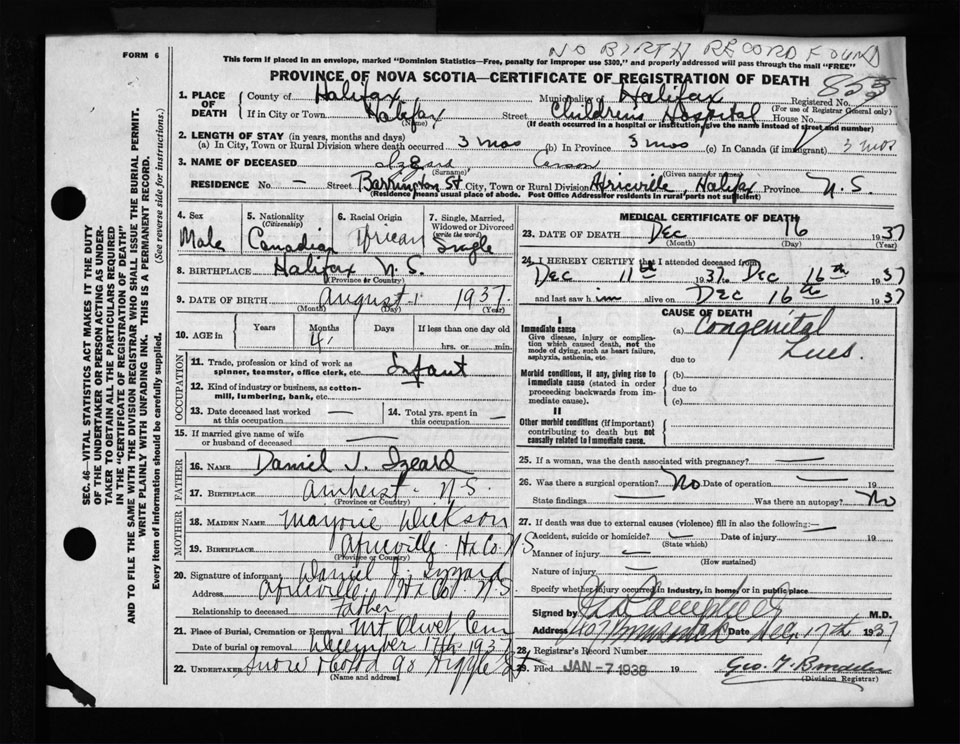 NO BIRTH RECORD FOUND
FORM 6
This form if placed in an envelope, marked "Dominion Statistics—Free, penalty for improper use $300," and properly addressed will pass through the mail "FREE"
PROVINCE OF NOVA SCOTIA—CERTIFICATE OF REGISTRATION OF DEATH
853
1. PLACE OF DEATH County of Halifax Municipality of Halifax Registered No.
(For use of Registrar General only)
If in City or Town Halifax Street Childrens Hospital House No.
(If death occurred in a hospital or institution, give the name instead of street and number)
2. LENGTH OF STAY (in years, months and days)
(a) In City, Town or Rural Division where death occurred 3 mos (b) In Province 3 mos (c) In Canada (if immigrant) 3 mos
3. NAME OF DECEASED Izzard Carson
(Surname) (Given name or names)
RESIDENCE No. — Street Barrington St City, Town or Rural Division Africville, Halifax Province N.S.
(Residence means usual place of abode. Post Office Address for residents in rural parts not sufficient)
4. Sex Male
5. Nationality (Citizenship) Canadian
6. Racial Origin African
7. Single, Married, Widowed or Divorced (write the word) Single
8. BIRTHPLACE Halifax N.S.
(Province or Country)
9. DATE OF BIRTH August 1 1937
(Month) (Day) (Year)
10. AGE IN Years Months 4 Days If less than one day old
hrs. or min.
OCCUPATION
11. Trade, profession or kind of work as spinner, teamster, office clerk, etc. Infant
12. Kind of industry or business, as cotton-mill, lumbering, bank, etc.
13. Date deceased last worked at this occupation —
14. Total yrs. spent in this occupation —
15. If married give name of wife or husband of deceased —
FATHER
16. NAME Daniel J. Izeard
17. BIRTHPLACE Amherst N.S.
(Province or Country)
MOTHER
18. MAIDEN NAME Marjorie Dickson
19. BIRTHPLACE Africville Hx Co. N.S
(Province or Country)
20. Signature of informant Daniel J. Izzard
Address Africville Hx Co. N.S
Relationship to deceased Father
21. Place of Burial, Cremation or Removal Mt Olivet Cem
Date of burial or removal December 17th 1937
22. UNDERTAKER Snow & Co Ltd 90 Argyle St
(Name and address)
MEDICAL CERTIFICATE OF DEATH
23. DATE OF DEATH Dec 16 1937
(Month) (Day) (Year)
24. I HEREBY CERTIFY that I attended deceased from
Dec 11th 1937 to Dec 16th 1937
and last saw him alive on Dec 16th 1937
CAUSE OF DEATH
I
Immediate cause (a) Congenital
Give disease, injury or complication which caused death, not the mode of dying, such as heart failure, asphyxia, asthenia, etc.
due to Lues.
Morbid conditions, if any, giving rise to immediate cause (stated in order proceeding backwards from immediate cause).
(b)
due to
(c)
II
Other morbid conditions (if important) contributing to death but not causally related to immediate cause.
25. If a woman, was the death associated with pregnancy? —
26. Was there a surgical operation? No Date of operation — 19
State findings — Was there an autopsy? No
27. If death was due to external causes (violence) fill in also the following:—
Accident, suicide or homicide? — Date of injury — 19
(State which)
Manner of injury —
(How sustained)
Nature of injury —
Specify whether injury occurred in industry, in home, or in public place
Signed by Campbell M.D.
Address Date Dec 17th 1937
28. Registrar's Record Number
29. Filed JAN -7 1938 19
(Division Registrar)
SEC. 46—VITAL STATISTICS ACT MAKES IT THE DUTY
OF THE UNDERTAKER OR PERSON ACTING AS UNDER-
TAKER TO OBTAIN ALL THE PARTICULARS REQUIRED
IN THE "CERTIFICATE OF REGISTRATION OF DEATH"
AND TO FILE THE SAME WITH THE DIVISION REGISTRAR WHO SHALL ISSUE THE BURIAL PERMIT.
WRITE PLAINLY WITH UNFADING INK. THIS IS A PERMANENT RECORD.
Every item of information should be carefully supplied. (See reverse side for instructions.)